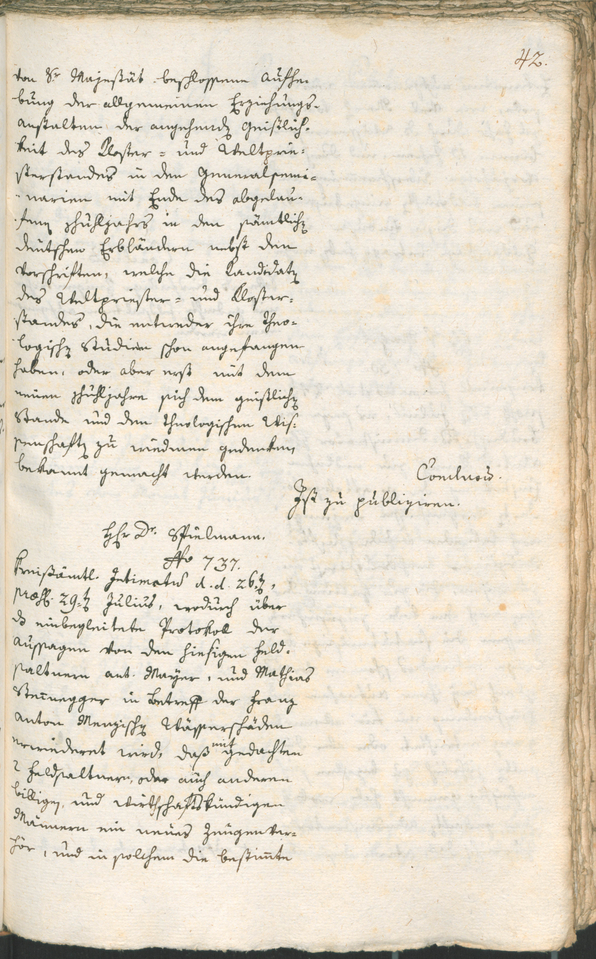 42.
von Sr Majestät beschlossene Aufhe-
bung der allgemeinen Erziehungs-
anstalten der angehenden Geistlich-
keit des Kloster- und Weltprie-
sterstandes in den Generalsemi-
narien mit Ende des abgelau-
fenen Schuhljahrs in den sämtlichen
deutschen Erbländern nebst den
Vorschriften, welche die Kandidaten
des Weltpriester- und Kloster-
standes, die entweder ihre theo-
logischen Studien schon angefangen
haben, oder aber erst mit dem
neuen Schuhljahre sich dem geistlichen
Stande und den theologischen Wis-
senschaften zu wiedmen gedenken
bekannt gemacht werden.
Conclusum.
Ist zu publiziren.
Hhr Dr. Stulmann.
Nro 737.
Kreisämtl. Intimatum d. d. 26.ten,
praes. 29.ten Julius, wodurch über
das einbegleitete Protokol der
Aussagen von den hiesigen Feld-
saltnern Ant. Mayer, und Mathias
Steinegger in Betreff der Franz
Anton Menzischen Wässerschäden
erwiederet wird, daß mit gedachten
2 Feldsaltnern, oder auch anderen
billigen, und wirthschaftskündigen
Männern ein neues Zeugenver-
hör, und in solchem die bestimmte